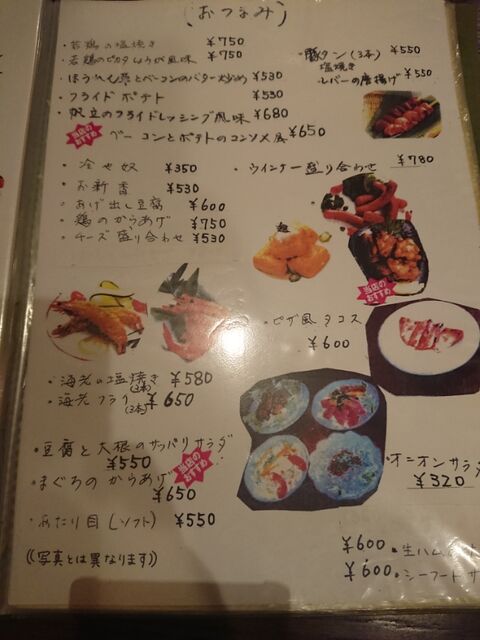 (おつまみ)
・若鶏の塩焼き ¥750
・若鶏のピカタしょうが風味 ¥750
・ほうれん草とベーコンのバター炒め ¥530
・フライドポテト ¥530
・帆立のフライドレッシング風味 ¥680
当店のおすすめ
ベーコンとポテトのコンソメ煮 ¥650
・豚タン(3本) ¥550
塩焼き
・レバーの唐揚げ ¥550
・冷や奴 ¥350
・お新香 ¥530
・あげ出し豆腐 ¥600
・鶏のからあげ ¥750
・チーズ盛り合わせ ¥530
・ウインナー盛り合わせ ¥780
当店のおすすめ
・ピザ風タコス
¥600
・海老の塩焼き ¥580
(3本)
・海老フライ ¥650
(3本)
・豆腐と大根のサッパリサラダ
¥550
当店のおすすめ
・まぐろのからあげ
¥650
・あたり目(ソフト) ¥550
・オニオンサラダ
¥320
¥600 ・生ハム
¥600 ・シーフードサ
((写真とは異なります))